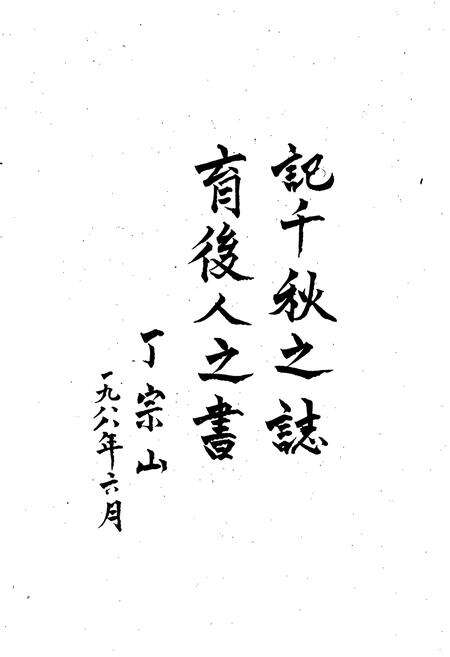 記千秋之誌
育後人之書
丁宗山
一九八八年六月